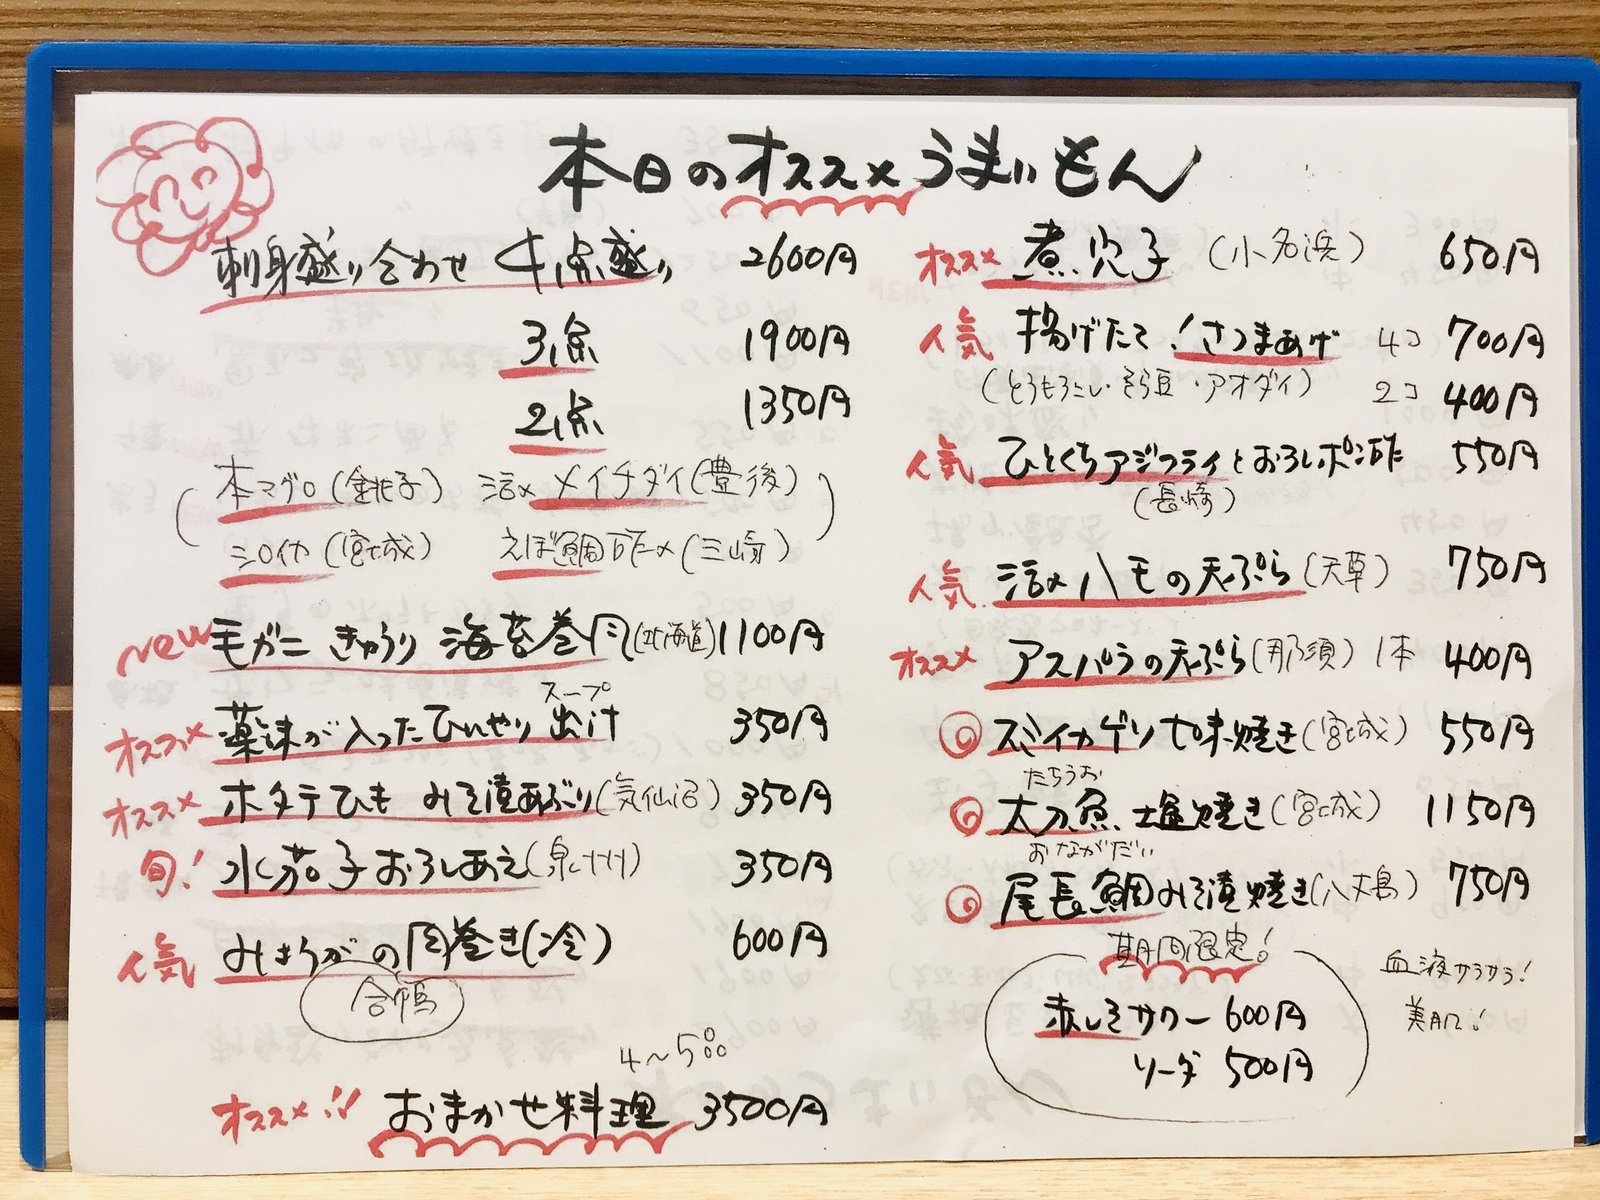 本日のオススメうまいもん
刺身盛り合わせ 4点盛り 2600円
3点 1900円
2点 1350円
(本マグロ(銚子) 活〆メイチダイ(豊後)
シロイカ(宮城) えぼ鯛酢〆(三崎))
New 毛ガニ きゅうり 海苔巻(北海道) 1100円
スープ
オススメ 薬味が入ったひんやり出汁 350円
オススメ ホタテひも みそ漬あぶり(気仙沼) 350円
旬! 水茄子おろしあえ(泉州) 350円
人気 みょうがの肉巻き(冷) 600円
合鴨
4〜5
オススメ!! おまかせ料理 3500円
オススメ 煮穴子(小名浜) 650円
人気 揚げたて!さつまあげ 4コ 700円
(とうもろこし・そら豆・アオダイ) 2コ 400円
人気 ひとくちアジフライとおろしポン酢 550円
(長崎)
人気 活〆ハモの天ぷら(天草) 750円
オススメ アスパラの天ぷら(那須) 1本 400円
スミイカゲソ七味焼き(宮城) 550円
たちうお
太刀魚 塩焼き(宮城) 1150円
おながだい
尾長鯛みそ漬焼き(八丈島) 750円
期間限定!
赤しそサワー 600円
ソーダ 500円
血液サラサラ!
美肌に!